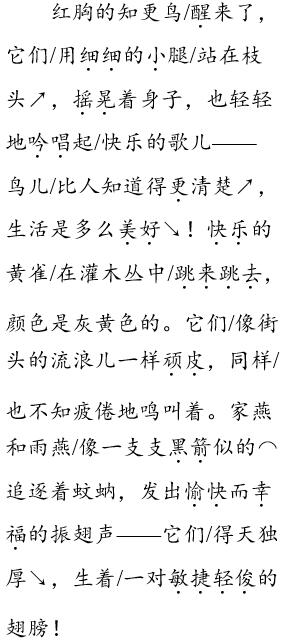 红胸的知更鸟/醒来了，
它们/用细细的小腿/站在枝
头↗，摇晃着身子，也轻轻
地吟唱起/快乐的歌儿——
鸟儿/比人知道得更清楚↗，
生活是多么美好↘！快乐的
黄雀/在灌木丛中/跳来跳去，
颜色是灰黄色的。它们/像街
头的流浪儿一样顽皮，同样/
也不知疲倦地鸣叫着。家燕
和雨燕/像一支支黑箭似的⌒
追逐着蚊蚋，发出愉快而幸
福的振翅声——它们/得天独
厚↘，生着/一对敏捷轻俊的
翅膀！